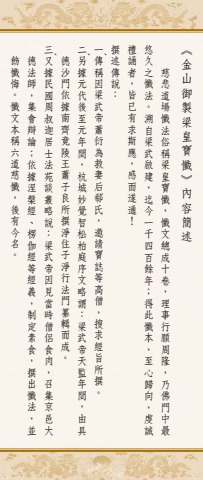 《金山御製梁皇寶懺》內容簡述
慈悲道場懺法俗稱梁皇寶懺，懺文總成十卷，理事行願周隆，乃佛門中最
悠久之懺法。溯自梁武啟建，迄今一千四百餘年；得此懺本，至心歸向，虔誠
禮誦者，皆已有求斯應，感而遂通！
撰述傳說：
一、傳稱因梁武帝蕭衍為救妻后郗氏，邀請寶誌等高僧，搜求經旨所撰。
二、另據元代後至元年間，杭城妙覺智松柏庭序文略謂：梁武帝天監年間，由具
德沙門依據南齊竟陵王蕭子良所撰淨住子淨行法門纂輯而成。
三、又據民國周叔迦居士法苑談叢略說：梁武帝因見當時僧侶食肉，召集京邑大
德法師，集會辯論；依據涅槃經、楞伽經等經義，制定素食，撰出懺法，並
飭懺悔。懺文本稱六道慈懺，後有今名。